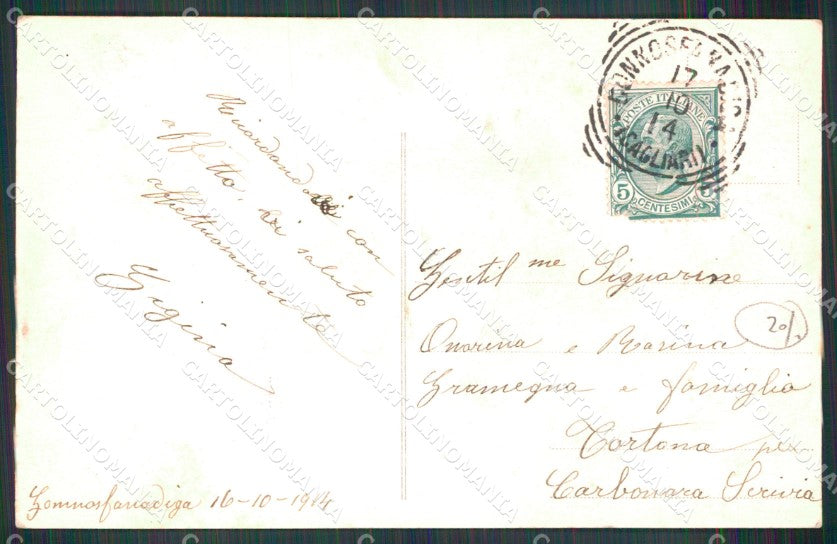 Ricordandovi con
affetto, vi saluto
affettuosamente
Gigina
Gonnosfanadiga 16-10-1914
17
10
14
(CAGLIARI)
POSTE ITALIANE
5 CENTESIMI 5
Gentil me Signorine
Onorina e Rosina
Gramegna e famiglia
Tortona per
Carbonara Scrivia
20/
CARTOLINOMANIA